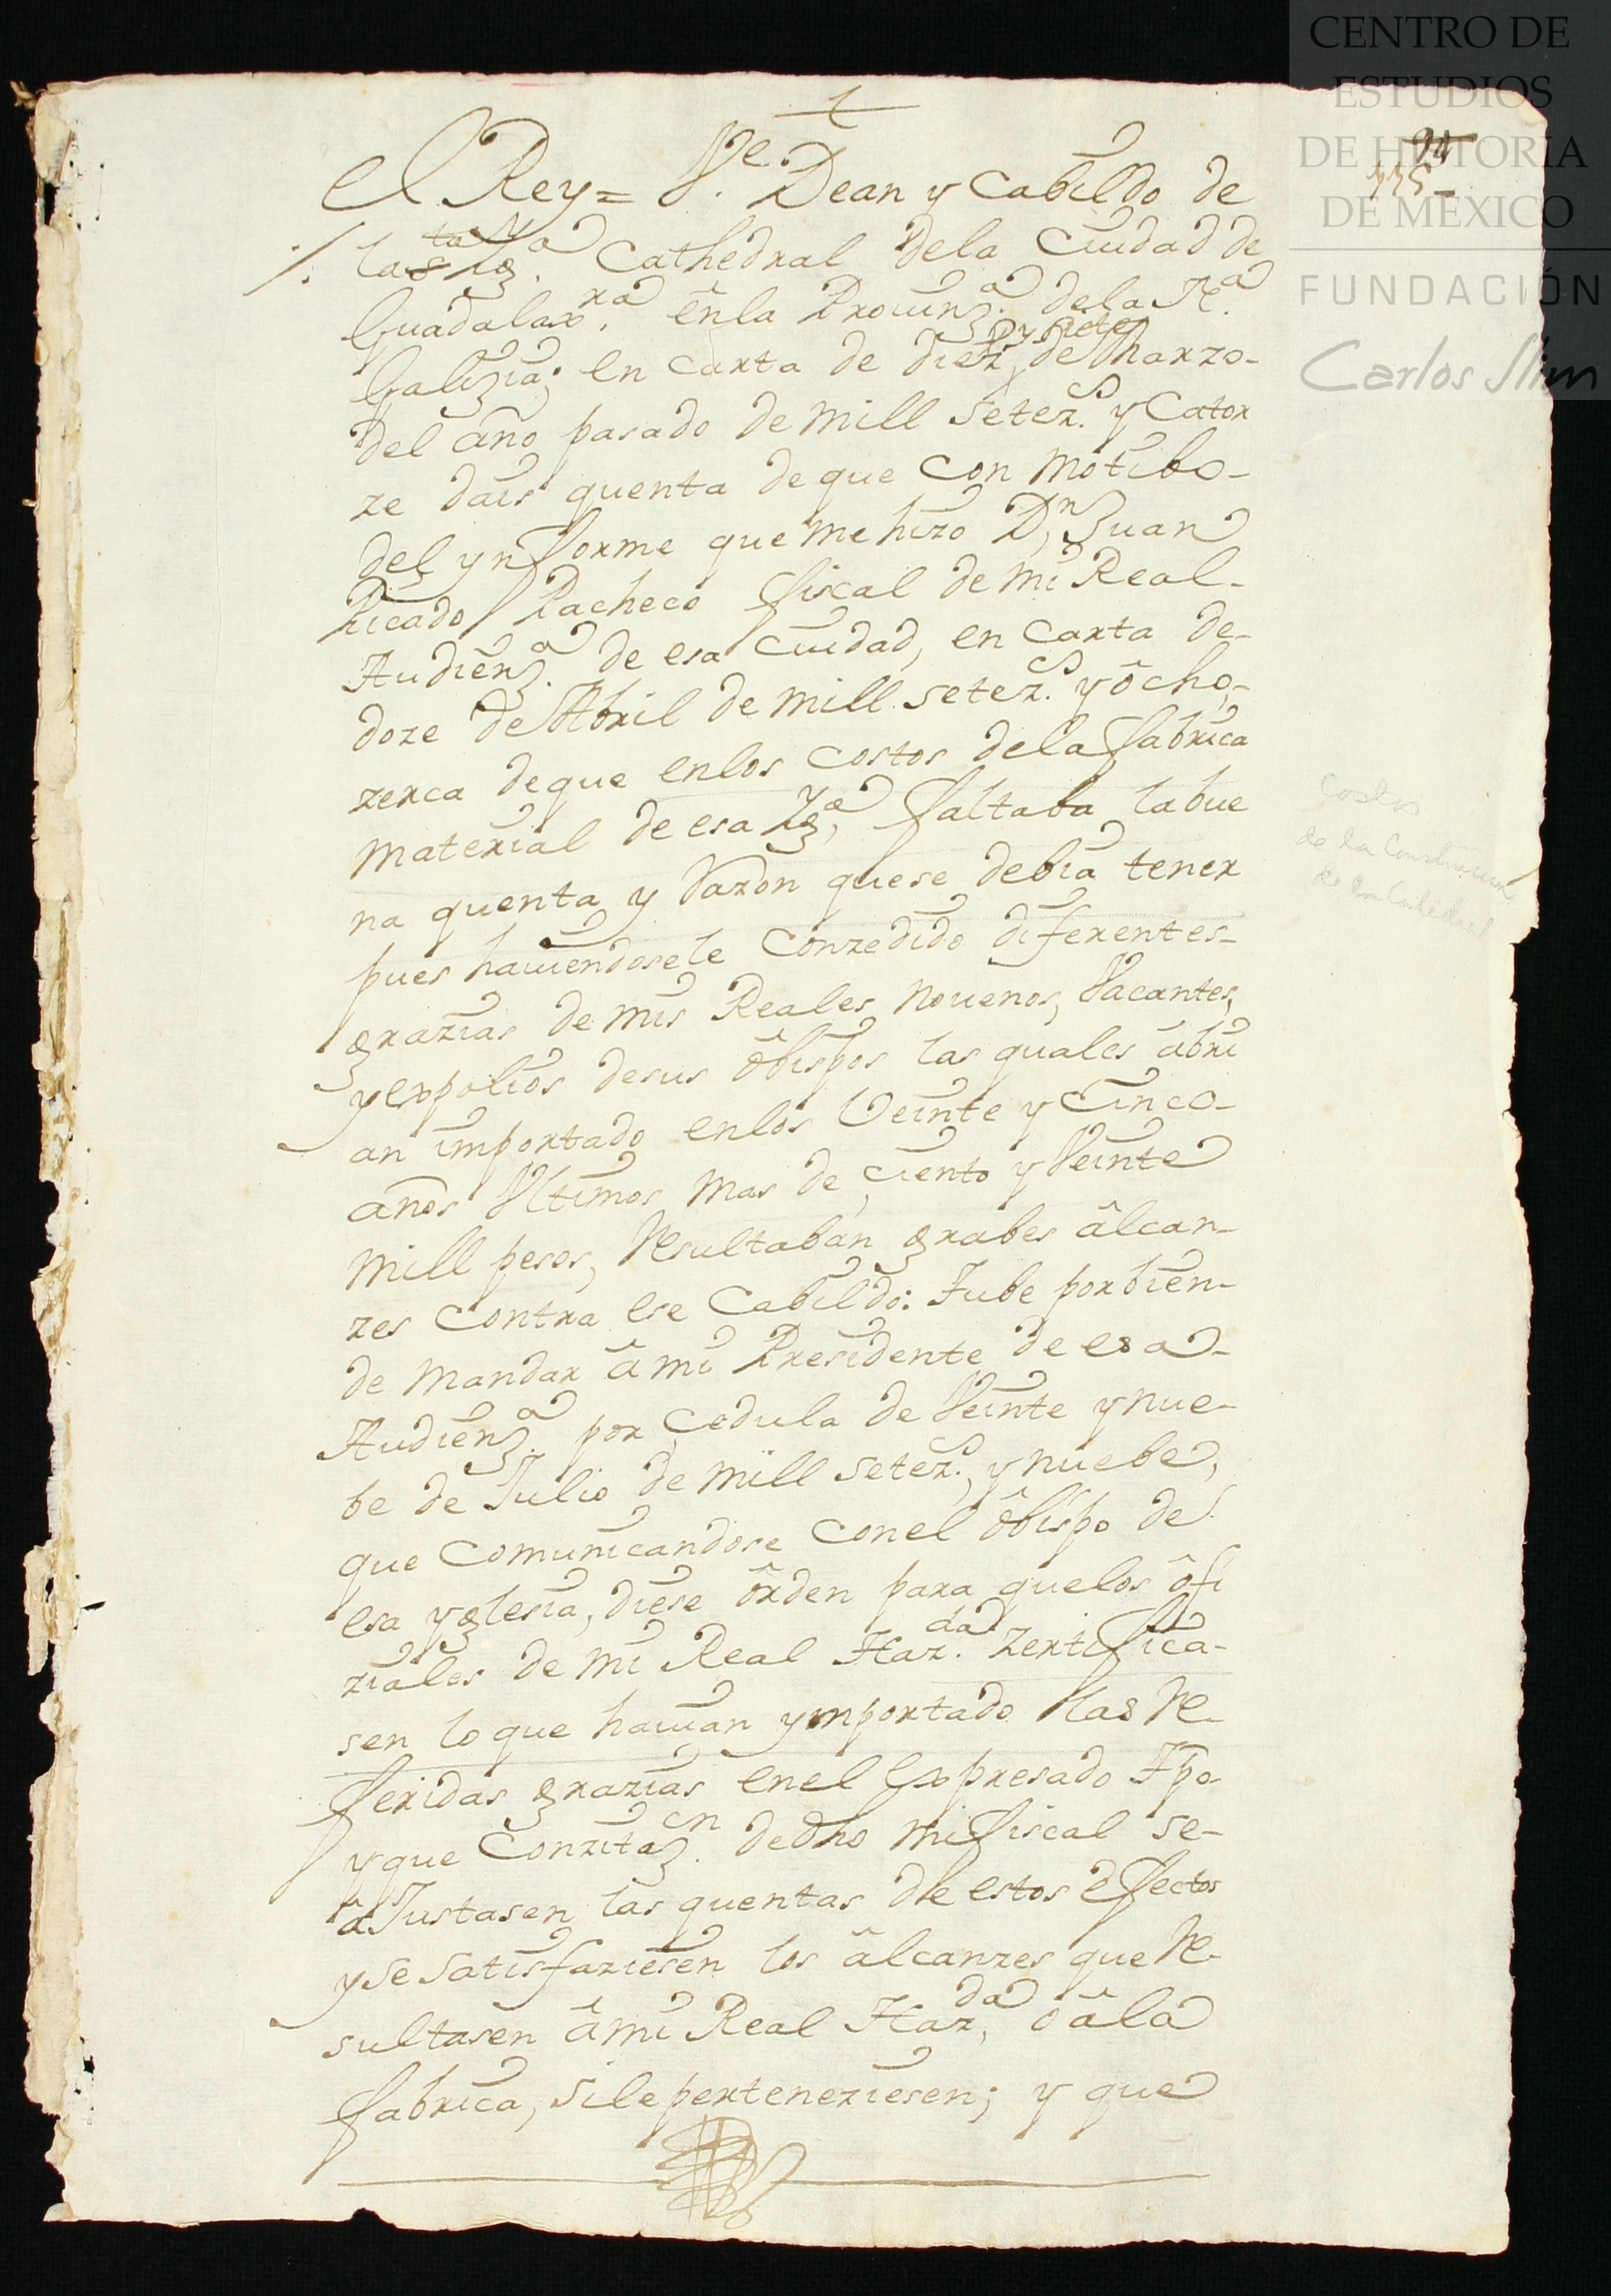 CENTRO DE
ESTUDIOS
DE HISTORIA
DE MÉXICO
FUNDACIÓN
Carlos Slim
94
115
El Rey = Ve. Dean y Cabildo de
la Sta Yga. Cathedral dela Ciudad de
Guadalaxra. ênla Provinza. dela Na.
Galizia; en Carta de diez y siete de Marzo-
del año pasado de mill setezs. y Cator
ze dais quenta de que con motibo-
del ynforme que me hizo Dn. Juan
Picado Pacheco fiscal de mi Real-
Audienza. de esa Ciudad, en Carta de-
doze de Abril de mill setezs. y ôcho,-
zerca deque enlos costos dela fabrica
material de esa Yga, faltaba la bue
na quenta y Razon quese debia tener
pues haviendosele Conzedido diferentes-
grazias de mis Reales novenos, Vacantes,
y expolios desus ôbispos las quales abri
an importado enlos Veinte y Cinco-
años Vltimos mas de Ciento y Veinte
mill pesos, Resultaban grabes âlcan-
zes contra ese Cabildo: Tube por bien-
de mandar â mi Presidente de esa-
Audienza. por Cedula de Veinte y nue-
be de Julio de mill setezs., y nuebe,
que Comunicandose conel ôbispo de
esa yglesia, diese ôrden para quelos ôfi
ziales de mi Real Hazda. zertifica-
sen lo que havian ymportado las Re-
feridas grazias enel expresado Tpo-
y que Conzitazn. de dho mi fiscal se-
âJustasen las quentas de estos efectos
y se satisfaziesen los âlcanzes que Re-
sultasen â mi Real Hazda, ô âla
fabrica, sile perteneziesen; y que
Costos
de la Construccion
de la Catedral